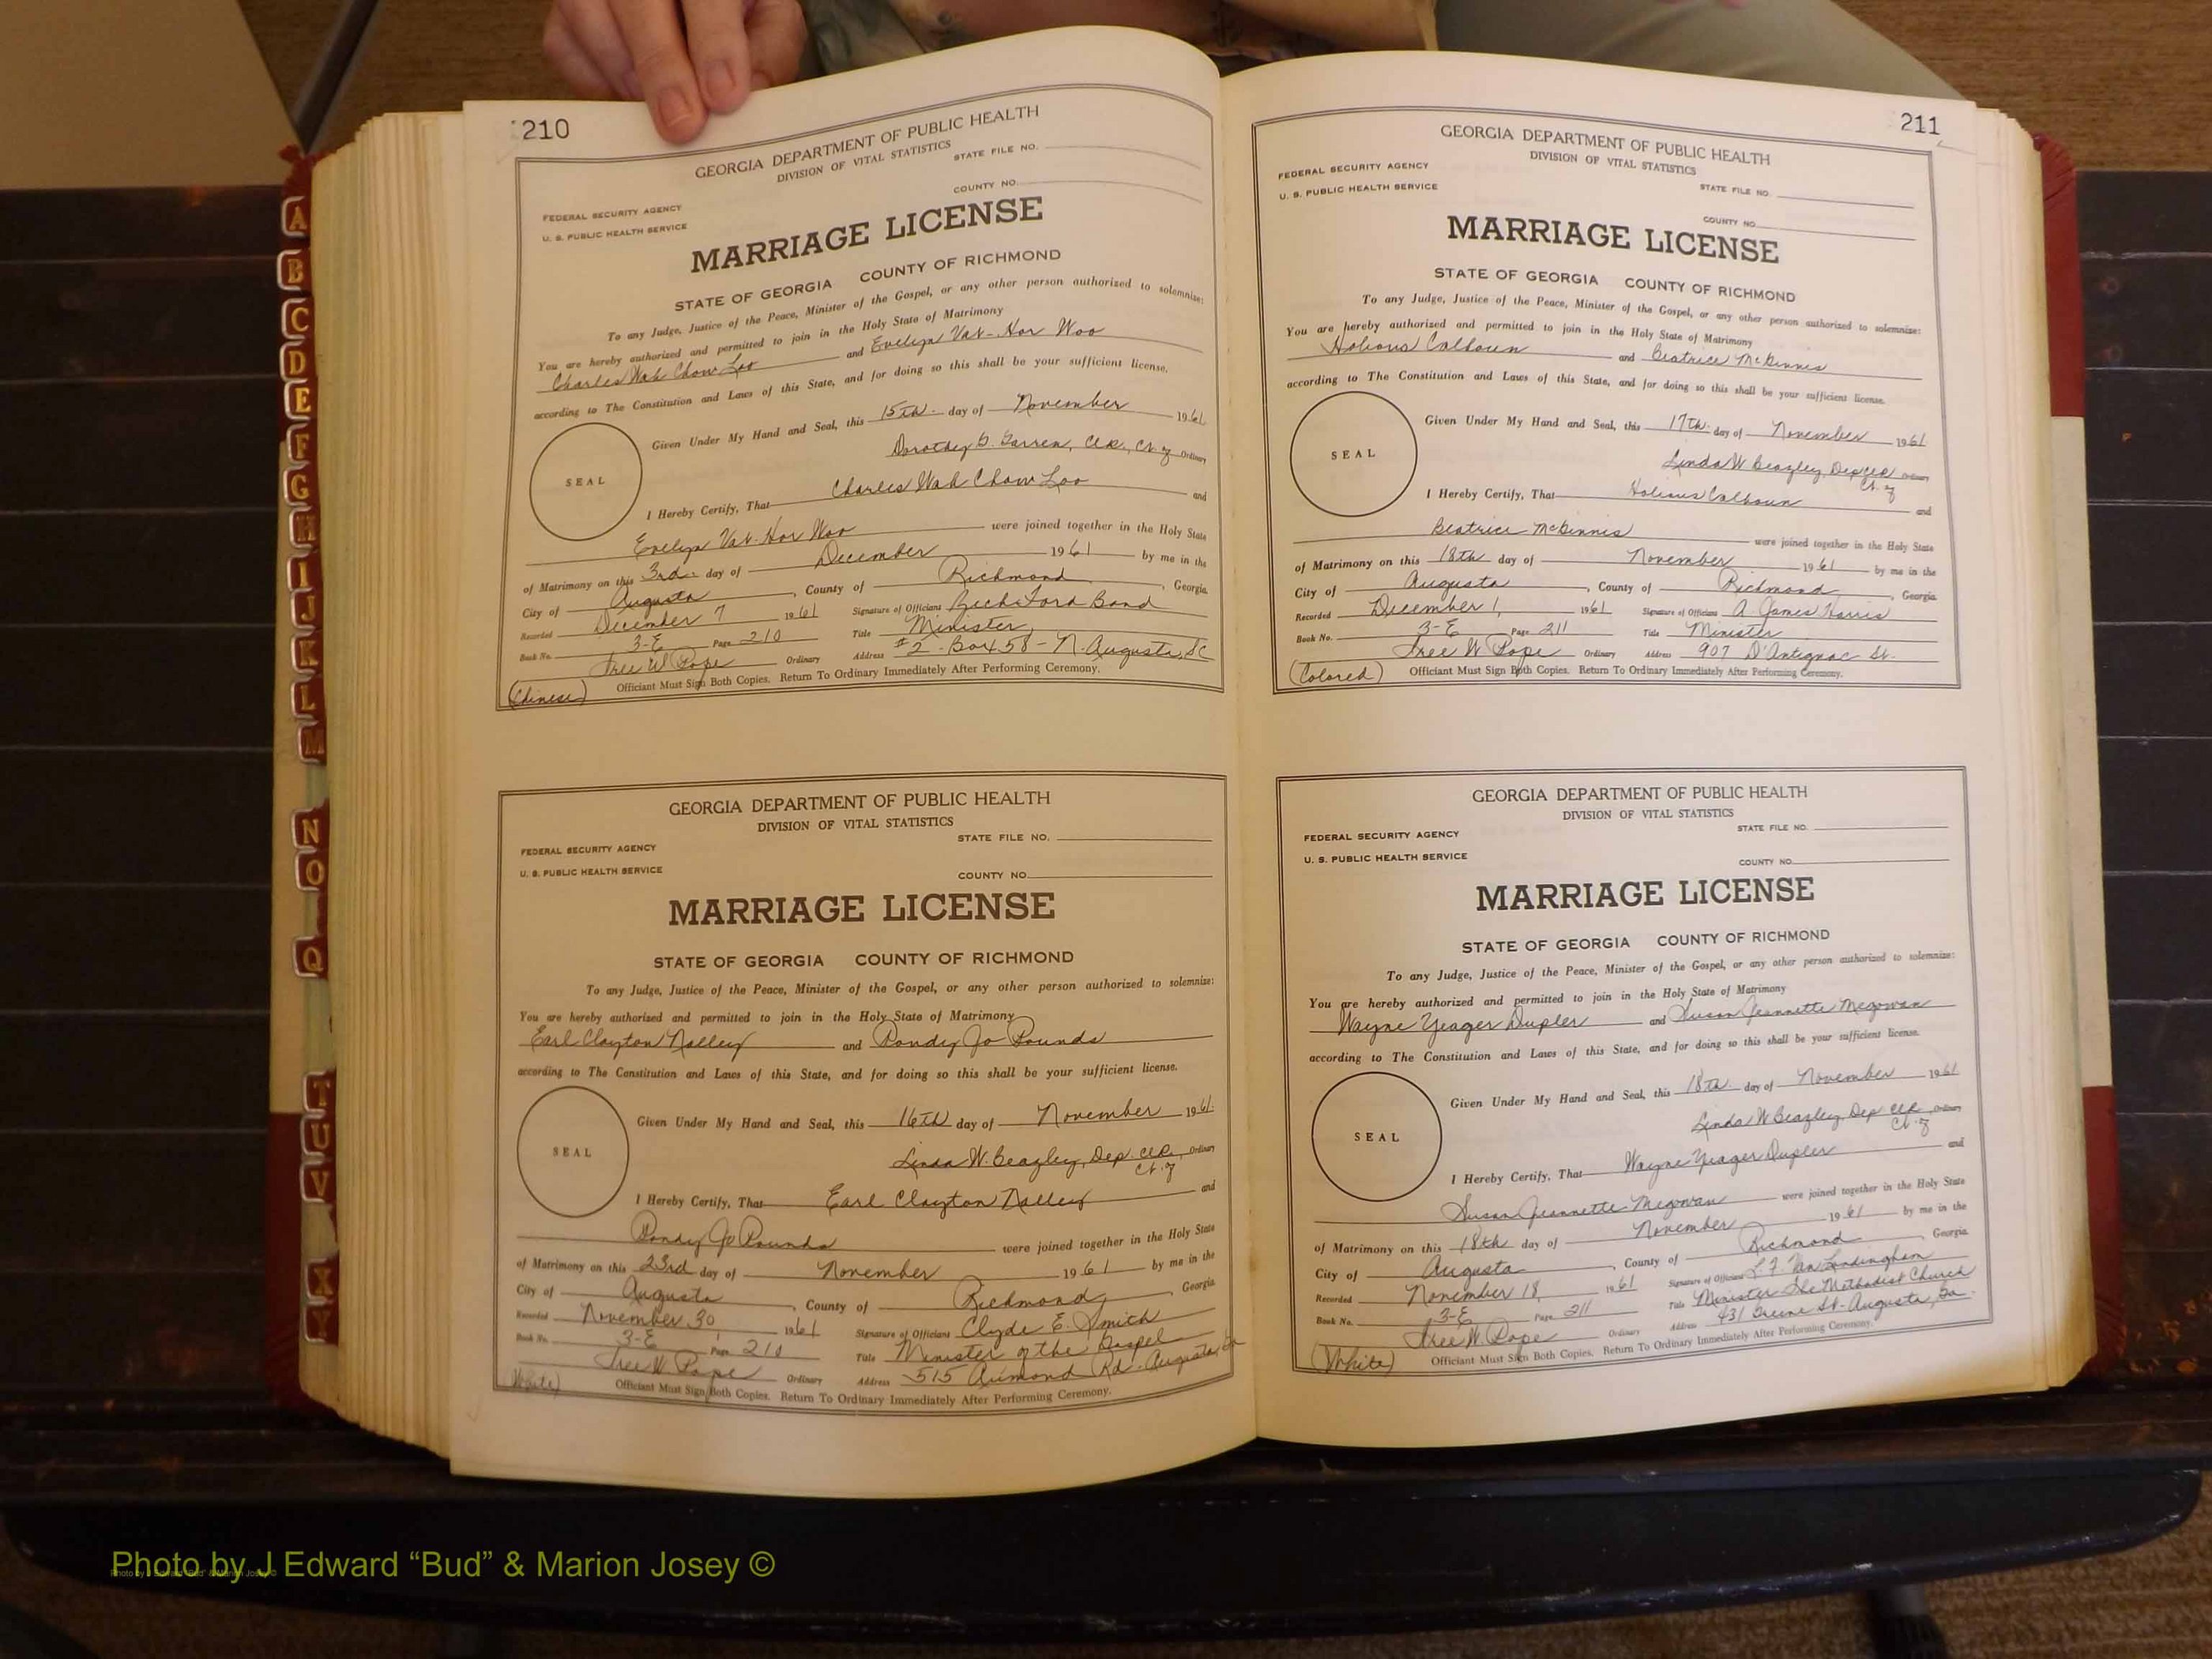 210
GEORGIA DEPARTMENT OF PUBLIC HEALTH
DIVISION OF VITAL STATISTICS
STATE FILE NO.
COUNTY NO.
FEDERAL SECURITY AGENCY
U. S. PUBLIC HEALTH SERVICE
MARRIAGE LICENSE
STATE OF GEORGIA COUNTY OF RICHMOND
To any Judge, Justice of the Peace, Minister of the Gospel, or any other person authorized to solemnize:
You are hereby authorized and permitted to join in the Holy State of Matrimony
Charles Wah Chow Loo and Evelyn Vak-Hor Woo
according to The Constitution and Laws of this State, and for doing so this shall be your sufficient license.
Given Under My Hand and Seal, this 15th day of November 1961
Dorothy D. Garren, Clk., Ct. of Ordinary
SEAL
I Hereby Certify, That Charles Wah Chow Loo and
Evelyn Vak-Hor Woo were joined together in the Holy State
of Matrimony on this 3rd day of December 1961 by me in the
City of Augusta, County of Richmond, Georgia.
Recorded December 7 1961 Signature of Officiant Ford Bond
Book No. 3-E Page 210 Title Minister
Tree W. Pope Ordinary Address #2 - Box 458 - N. Augusta, SC
(Chinese) Officiant Must Sign Both Copies. Return To Ordinary Immediately After Performing Ceremony.
GEORGIA DEPARTMENT OF PUBLIC HEALTH
DIVISION OF VITAL STATISTICS
STATE FILE NO.
FEDERAL SECURITY AGENCY
U. S. PUBLIC HEALTH SERVICE
COUNTY NO.
MARRIAGE LICENSE
STATE OF GEORGIA COUNTY OF RICHMOND
To any Judge, Justice of the Peace, Minister of the Gospel, or any other person authorized to solemnize:
You are hereby authorized and permitted to join in the Holy State of Matrimony
Earl Clayton Nalley and Pondy Jo Pounds
according to The Constitution and Laws of this State, and for doing so this shall be your sufficient license.
Given Under My Hand and Seal, this 16th day of November 1961
Linda W. Beazley, Dep. Clk., Ordinary
Ct. of
SEAL
I Hereby Certify, That Earl Clayton Nalley and
Pondy Jo Pounds were joined together in the Holy State
of Matrimony on this 23rd day of November 1961 by me in the
City of Augusta, County of Richmond, Georgia
Recorded November 30, 1961 Signature of Officiant Clyde E. Smith
Book No. 3-E Page 210 Title Minister of the Gospel
Tree W. Pope Ordinary Address 515 Aumond Rd - Augusta, Ga
(White) Officiant Must Sign Both Copies. Return To Ordinary Immediately After Performing Ceremony.
211
GEORGIA DEPARTMENT OF PUBLIC HEALTH
DIVISION OF VITAL STATISTICS
FEDERAL SECURITY AGENCY
U. S. PUBLIC HEALTH SERVICE
STATE FILE NO.
COUNTY NO.
MARRIAGE LICENSE
STATE OF GEORGIA COUNTY OF RICHMOND
To any Judge, Justice of the Peace, Minister of the Gospel, or any other person authorized to solemnize:
You are hereby authorized and permitted to join in the Holy State of Matrimony
Holious Calhoun and Beatrice McGinnis
according to The Constitution and Laws of this State, and for doing so this shall be your sufficient license.
Given Under My Hand and Seal, this 17th day of November 1961
Linda W Beazley, Dep Clk Ordinary
Ct. of
SEAL
I Hereby Certify, That Holious Calhoun and
Beatrice McGinnis were joined together in the Holy State
of Matrimony on this 18th day of November 1961 by me in the
City of Augusta, County of Richmond, Georgia
Recorded December 1, 1961 Signature of Officiant A. James Harris
Book No. 3-E Page 211 Title Minister
Tree W. Pope Ordinary Address 907 D'Antignac St.
(Colored) Officiant Must Sign Both Copies. Return To Ordinary Immediately After Performing Ceremony.
GEORGIA DEPARTMENT OF PUBLIC HEALTH
DIVISION OF VITAL STATISTICS
STATE FILE NO.
FEDERAL SECURITY AGENCY
U. S. PUBLIC HEALTH SERVICE
COUNTY NO.
MARRIAGE LICENSE
STATE OF GEORGIA COUNTY OF RICHMOND
To any Judge, Justice of the Peace, Minister of the Gospel, or any other person authorized to solemnize:
You are hereby authorized and permitted to join in the Holy State of Matrimony
Wayne Yeager Dupler and Susan Jeannette Megowan
according to The Constitution and Laws of this State, and for doing so this shall be your sufficient license.
Given Under My Hand and Seal, this 18th day of November 1961
Linda W Beazley, Dep Clk Ordinary
Ct. of
SEAL
I Hereby Certify, That Wayne Yeager Dupler and
Susan Jeannette Megowan were joined together in the Holy State
of Matrimony on this 18th day of November 1961 by me in the
City of Augusta, County of Richmond, Georgia
Recorded November 18, 1961 Signature of Officiant L. F. Van Landingham
Book No. 3-E Page 211 Title Minister The Methodist Church
Tree W. Pope Ordinary Address 431 Greene St - Augusta, Ga.
(White) Officiant Must Sign Both Copies. Return To Ordinary Immediately After Performing Ceremony.
A
B
C
D
E
F
G
H
I
J
K
L
M
N
O
Q
T
U
V
X
Y
Photo by J Edward “Bud” & Marion Josey ©
Photo by J Edward “Bud” & Marion Josey ©